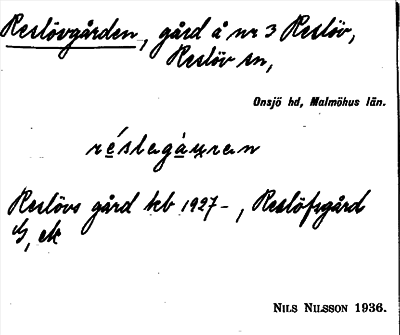 Reslövgården, gård å nr 3 Reslöv,
Reslöv sn,
Onsjö hd, Malmöhus län.
réslagàu̯ran
Reslövs gård kb 1927-, Reslöfsgård
ek
NILS NILSSON 1936.